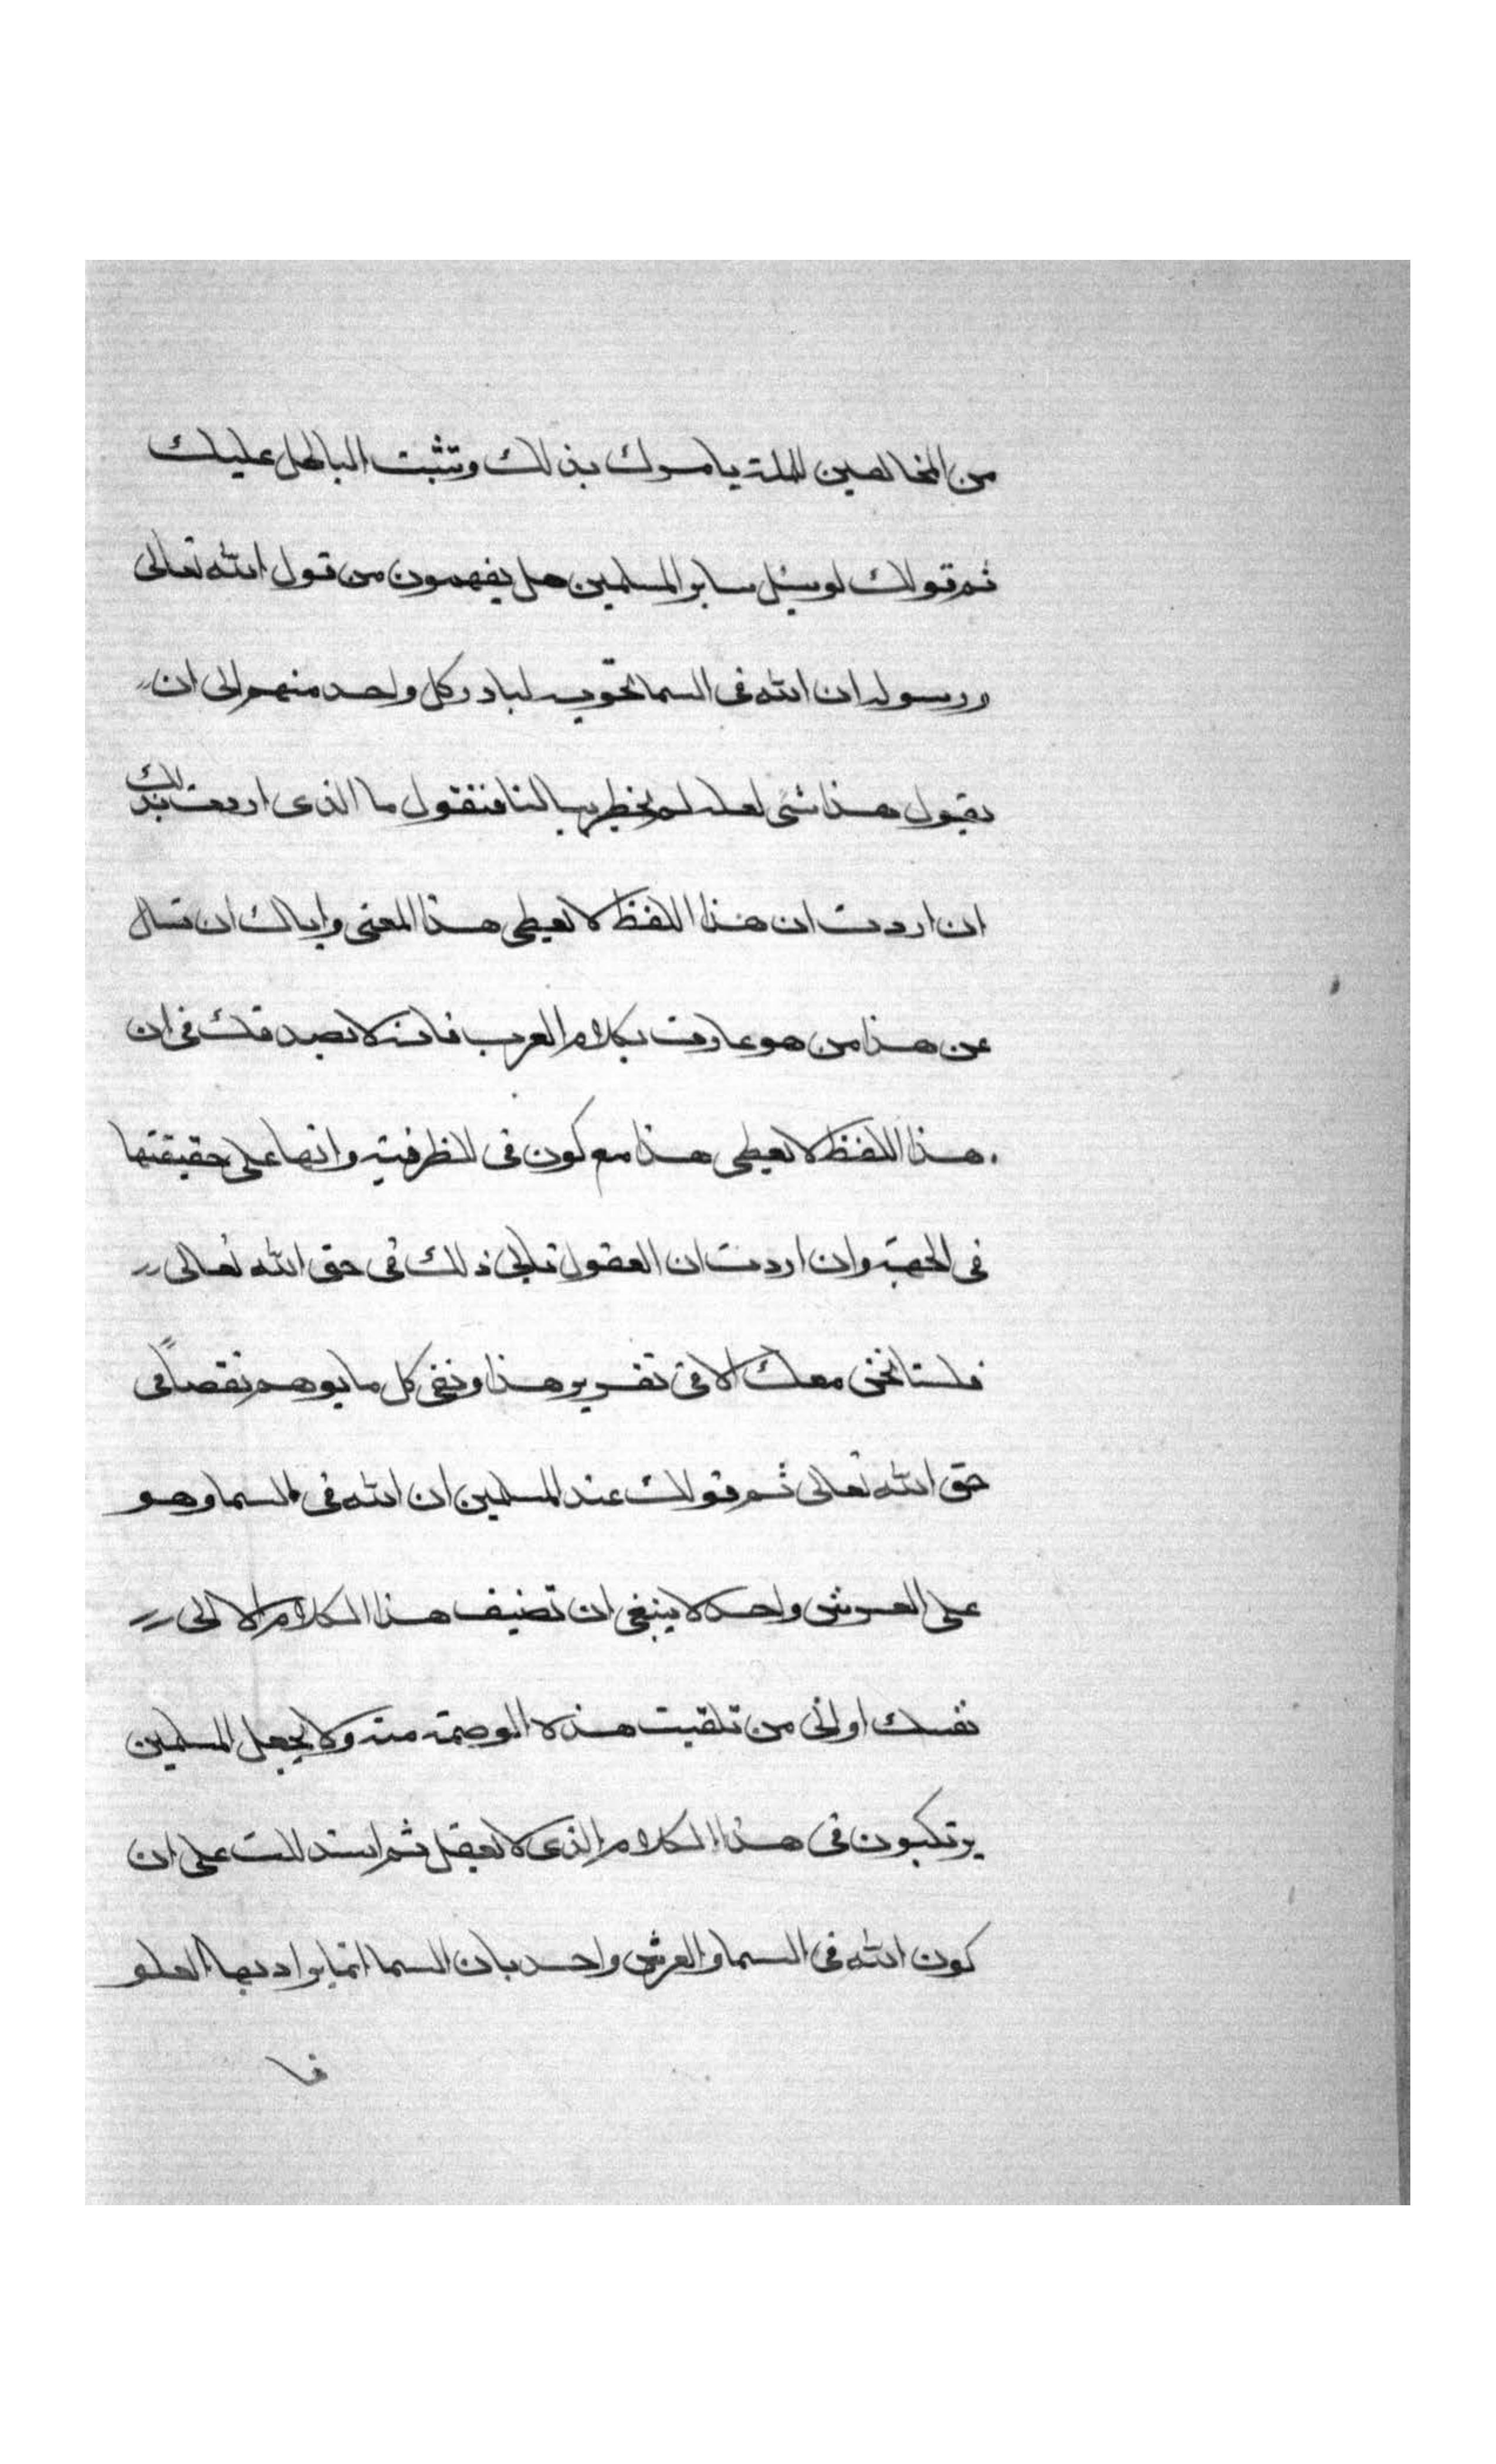 من المخالفين للملة يامرك بذلك وتثبت الباطل عليك
ثم قولك لو سئل ساير المسلمين هل يفهمون من قول الله تعالى
ورسوله ان الله فى السما تحويه لبادر كل واحد منهم الى ان
يقول هذا شى لعله لم يخطر ببالنا فنقول ما الذى اردت بذلك
ان اردت ان هذا اللفظ لا يعطى هذا المعنى واياك ان تسال
عن هذا من هو عارف بكلام العرب فانه لا يصدقك فى ان
هذا اللفظ لا يعطى هذا مع كون فى للظرفية وانها على حقيقتها
فى الجهة وان اردت ان العقول تابى ذلك فى حق الله تعالى
فلسنا نحن معك الا فى تقرير هذا ونفى كل ما يوهم نقصًا فى
حق الله تعالى ثم قولك عند المسلمين ان الله فى السما وهو
على العرش واحد لا ينبغى ان تضيف هذا الكلام الا الى
نفسك او الى من تلقيت هذه الوصمة منه ولا تجعل المسلمين
يرتكبون فى هذا الكلام الذى لا يعقل ثم استدللت على ان
كون الله فى السما والعرش واحد بان السما انما يراد بها العلو
فا